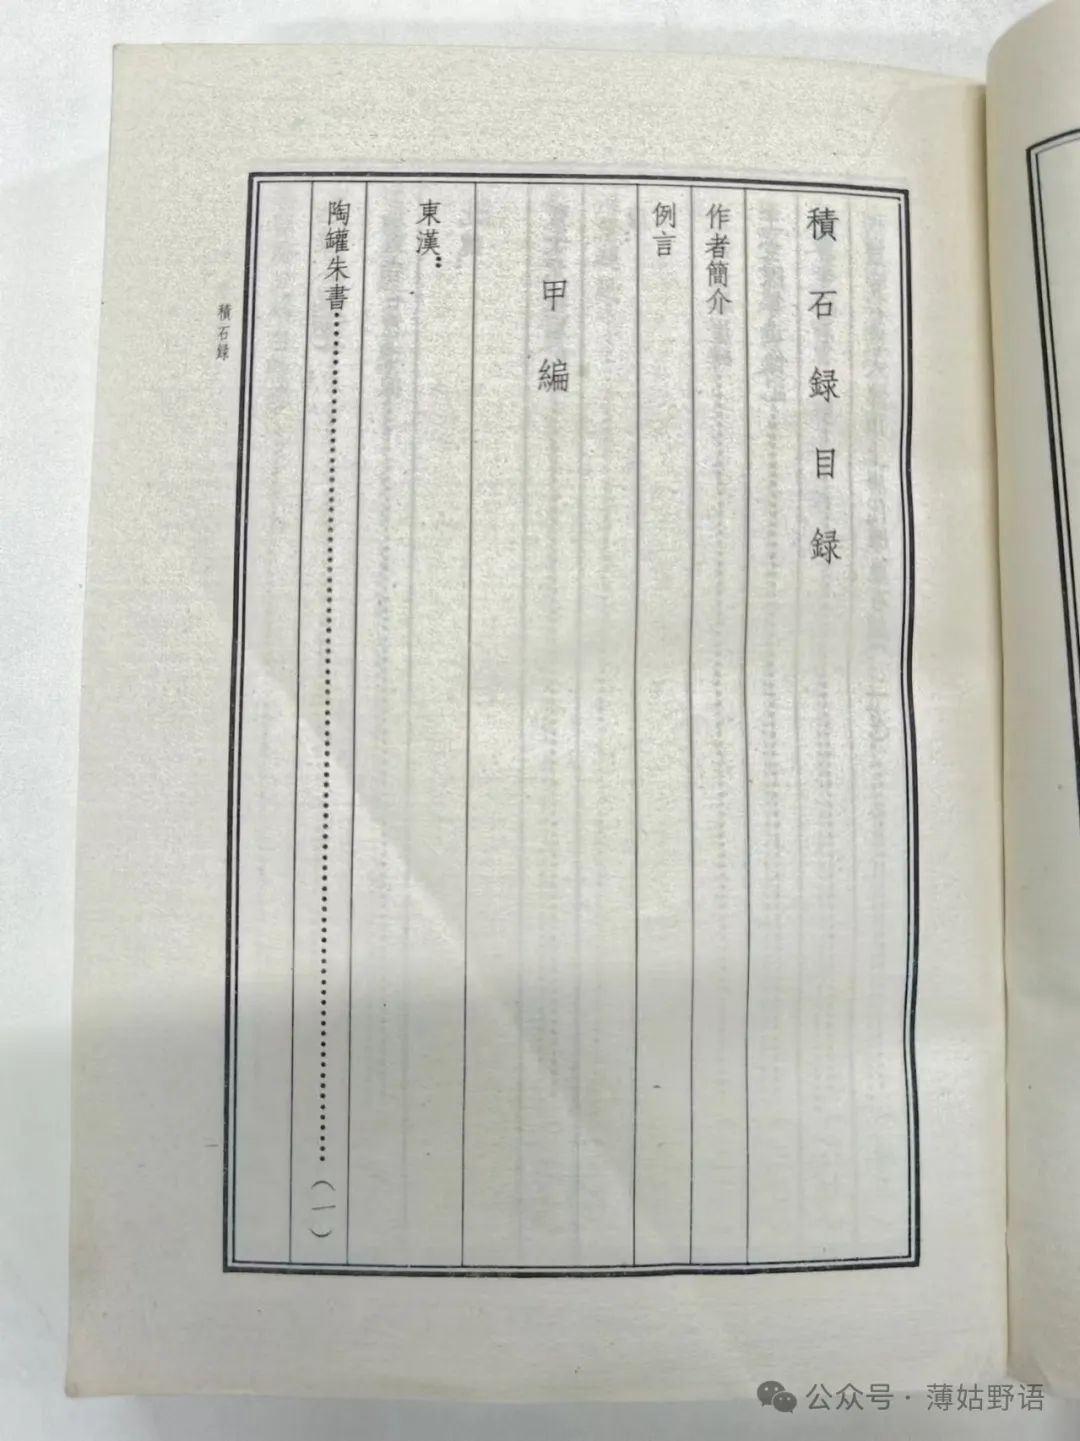 積石録目録
作者簡介
例言
甲編
東漢：
陶罐朱書……（一）
積石録
公众号·薄姑野语